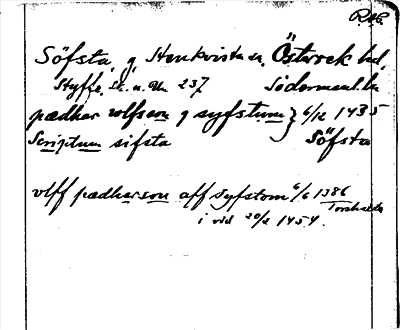 Söfsta, g Stenkvista sn. Österrek hd.
Styffe, Sk. u. Un 237 Södermanl. län
pædher wlfsson y syfstum } 6/12 1435
Scriptum sifsta Söfsta
vlff pædherson aff syfstom 6/6 1386
i vid 20/2 1454.